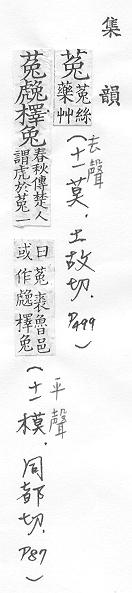 集韻
菟
菟絲
藥艸
去聲
(十一莫.土故切.P499)
菟䖘檡兔
春秋傳楚人
謂虎於菟一
曰菟裘魯邑
或作䖘檡兔
平聲
(十一模.同都切.P87)